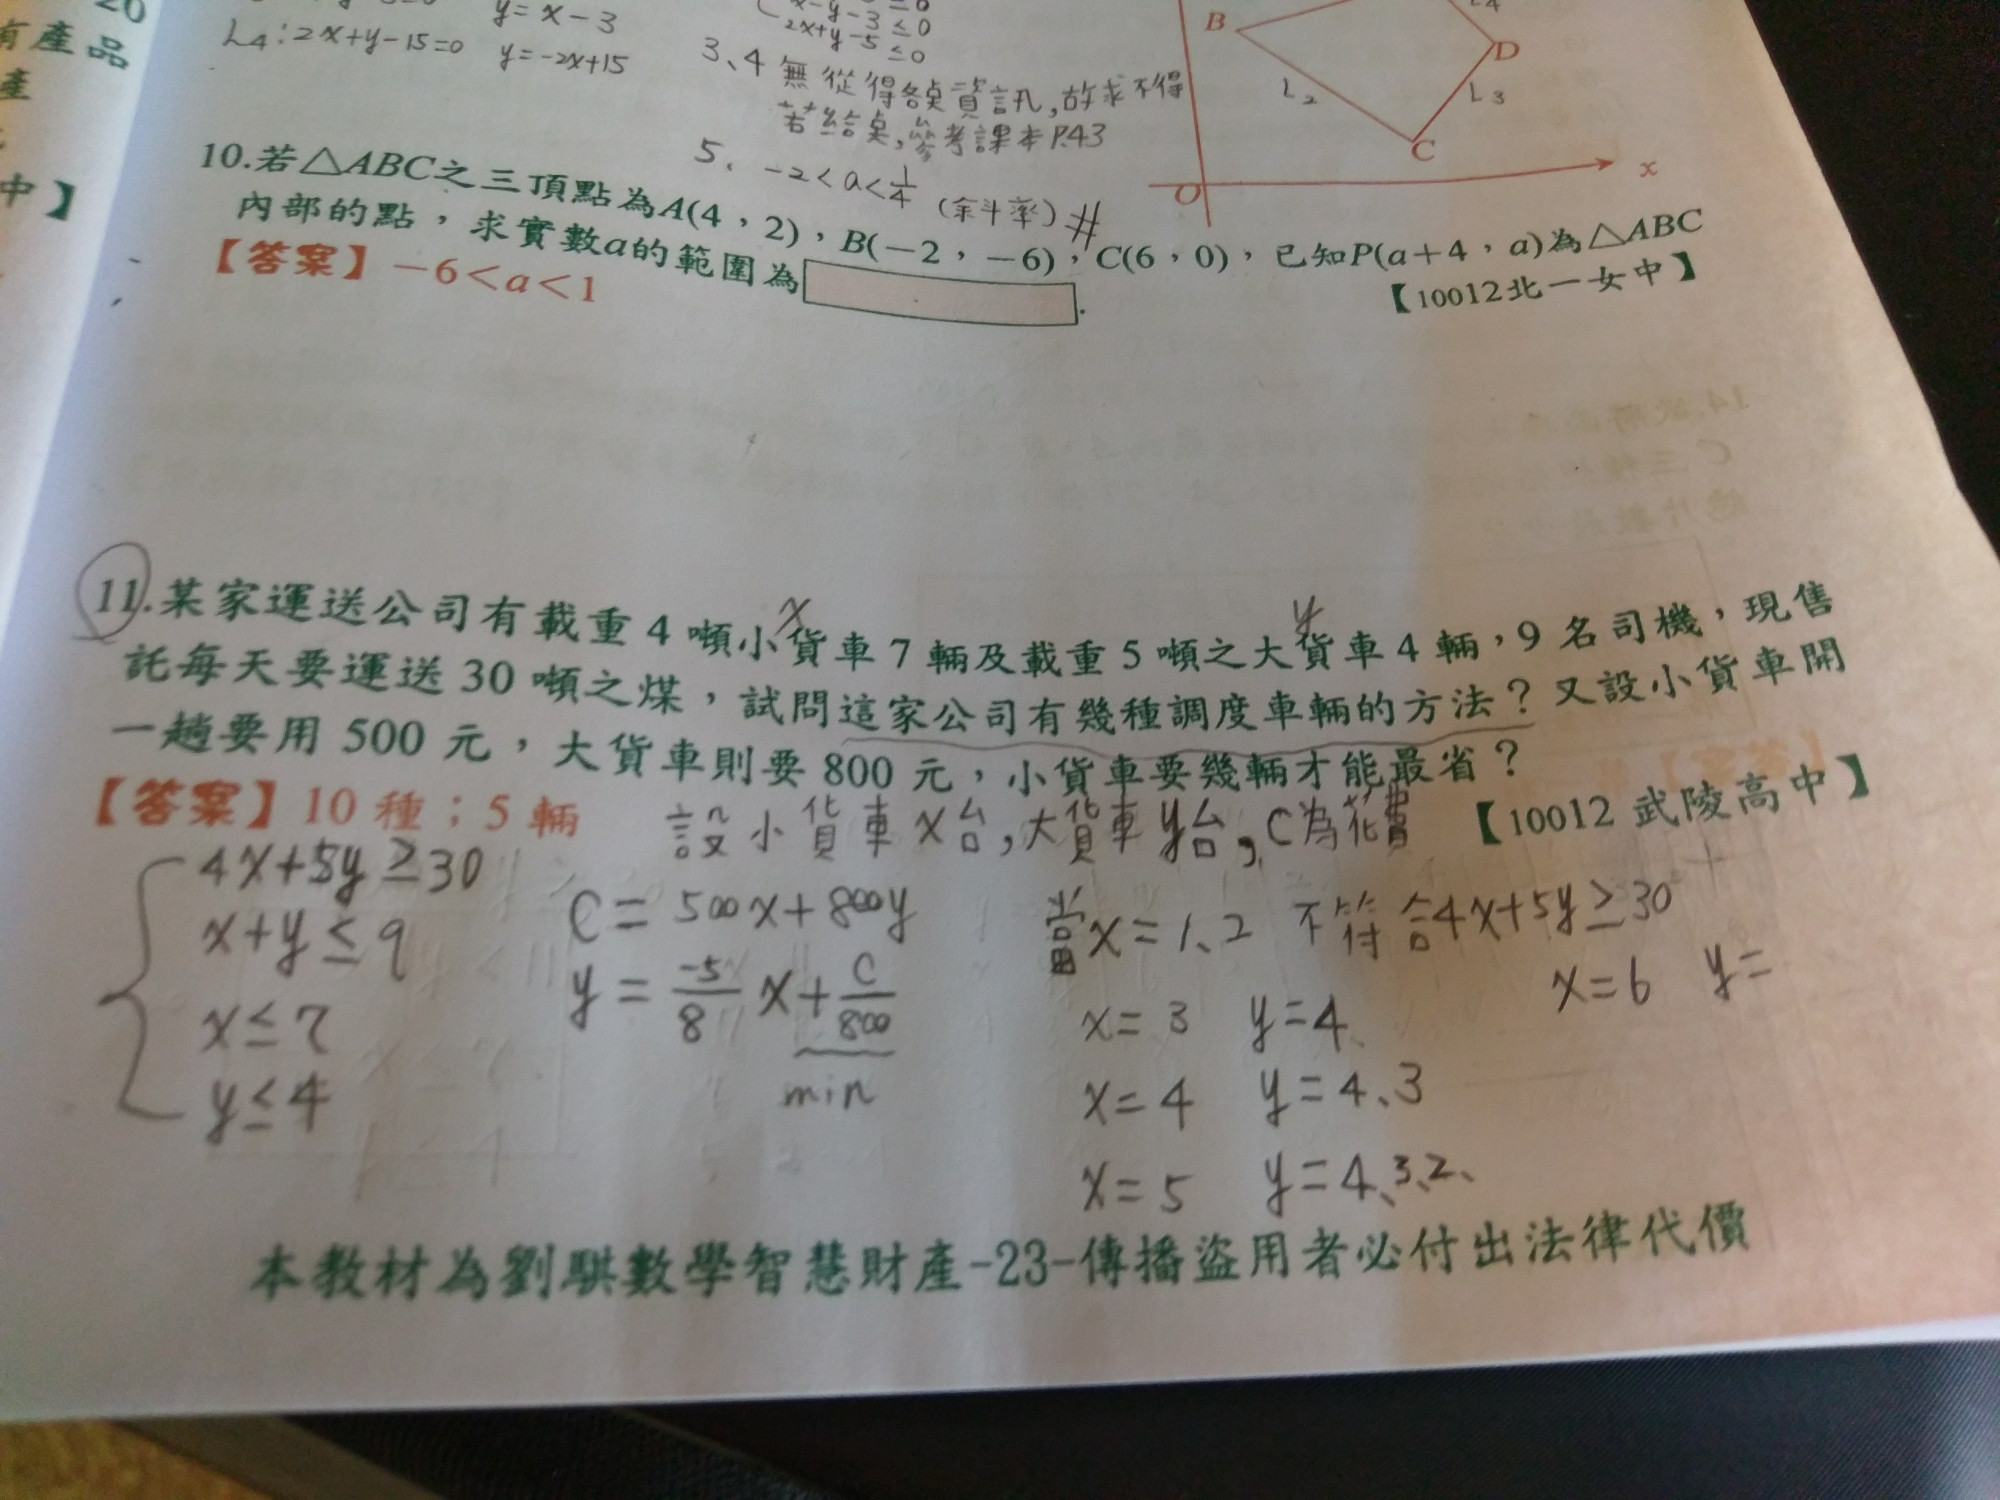 20
有產品
產
中】
y=x-3
L4:2x+y-15=0 y=-2x+15
x-y-3≤0
2x+y-5≤0
3、4 無從得各桌資訊,故求不得
若給桌,參考課本P.43
5、-2<a<1/4 (斜率)#
B
L4
D
L2
L3
C
O
x
10.若△ABC之三頂點為A(4,2),B(-2,-6),C(6,0),已知P(a+4,a)為△ABC
內部的點,求實數a的範圍為 .
【10012北一女中】
【答案】-6<a<1
x y
11.某家運送公司有載重4噸小貨車7輛及載重5噸之大貨車4輛,9名司機,現售
託每天要運送30噸之煤,試問這家公司有幾種調度車輛的方法?又設小貨車開
一趟要用500元,大貨車則要800元,小貨車要幾輛才能最省?
【答案】10種;5輛
【10012 武陵高中】
設小貨車x台,大貨車y台,C為花費
4x+5y≥30
x+y≤9
x≤7
y≤4
C=500x+800y
y=-5/8 x+C/800
min
當x=1、2 不符合4x+5y≥30
x=3 y=4
x=4 y=4、3
x=5 y=4、3、2、
x=6 y=
本教材為劉騏數學智慧財產-23-傳播盜用者必付出法律代價